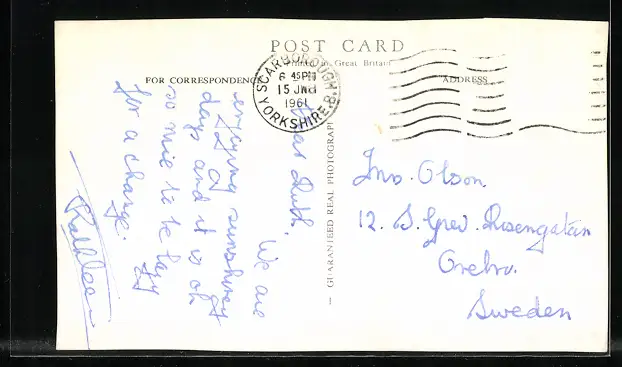 POST CARD
Printed in Great Britain
FOR CORRESPONDENCE
ADDRESS
SCARBOROUGH
6 45PM
15 JNE
1961
YORKSHIRE. B.
GUARANTEED REAL PHOTOGRAPH
Dear Ruth,
We are
enjoying sunshiney
days and it is oh
so nice to be lazy
for a change.
Kathleen
Mrs. Olson,
12. S. Grev. Rosengatan
Orebro.
Sweden